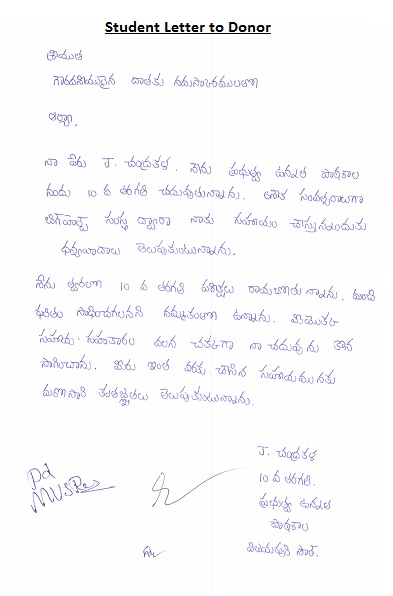 Student Letter to Donor
శ్రీయుత
గౌరవనీయులైన దాతకు నమస్కారములతో
ఆర్యా,
నా పేరు J. చంద్రకళ. నేను ప్రభుత్వ ఉన్నత పాఠశాల
నందు 10 వ తరగతి చదువుతున్నాను. అనేక సంవత్సరాలుగా
సంస్థ ద్వారా నాకు సహాయం చేస్తున్నందుకు
ధన్యవాదాలు తెలుపుతుంటున్నాను.
నేను త్వరలో 10 వ తరగతి పరీక్షలు రాయబోతున్నాను. మంచి
ఫలితం సాధించగలనని నమ్మకంతో ఉన్నాను. మీయొక్క
సహాయ సహకారం వలన చక్కగా నా చదువును కొన
సాగించాను. మీరు ఇంత వరకు చేసిన సహాయమునకు
మనసారా కృతజ్ఞతలు తెలుపుకుంటున్నాను.
J. చంద్రకళ
10 వ తరగతి.
ప్రభుత్వ ఉన్నత
పాఠశాల
విజయపురి సౌత్.